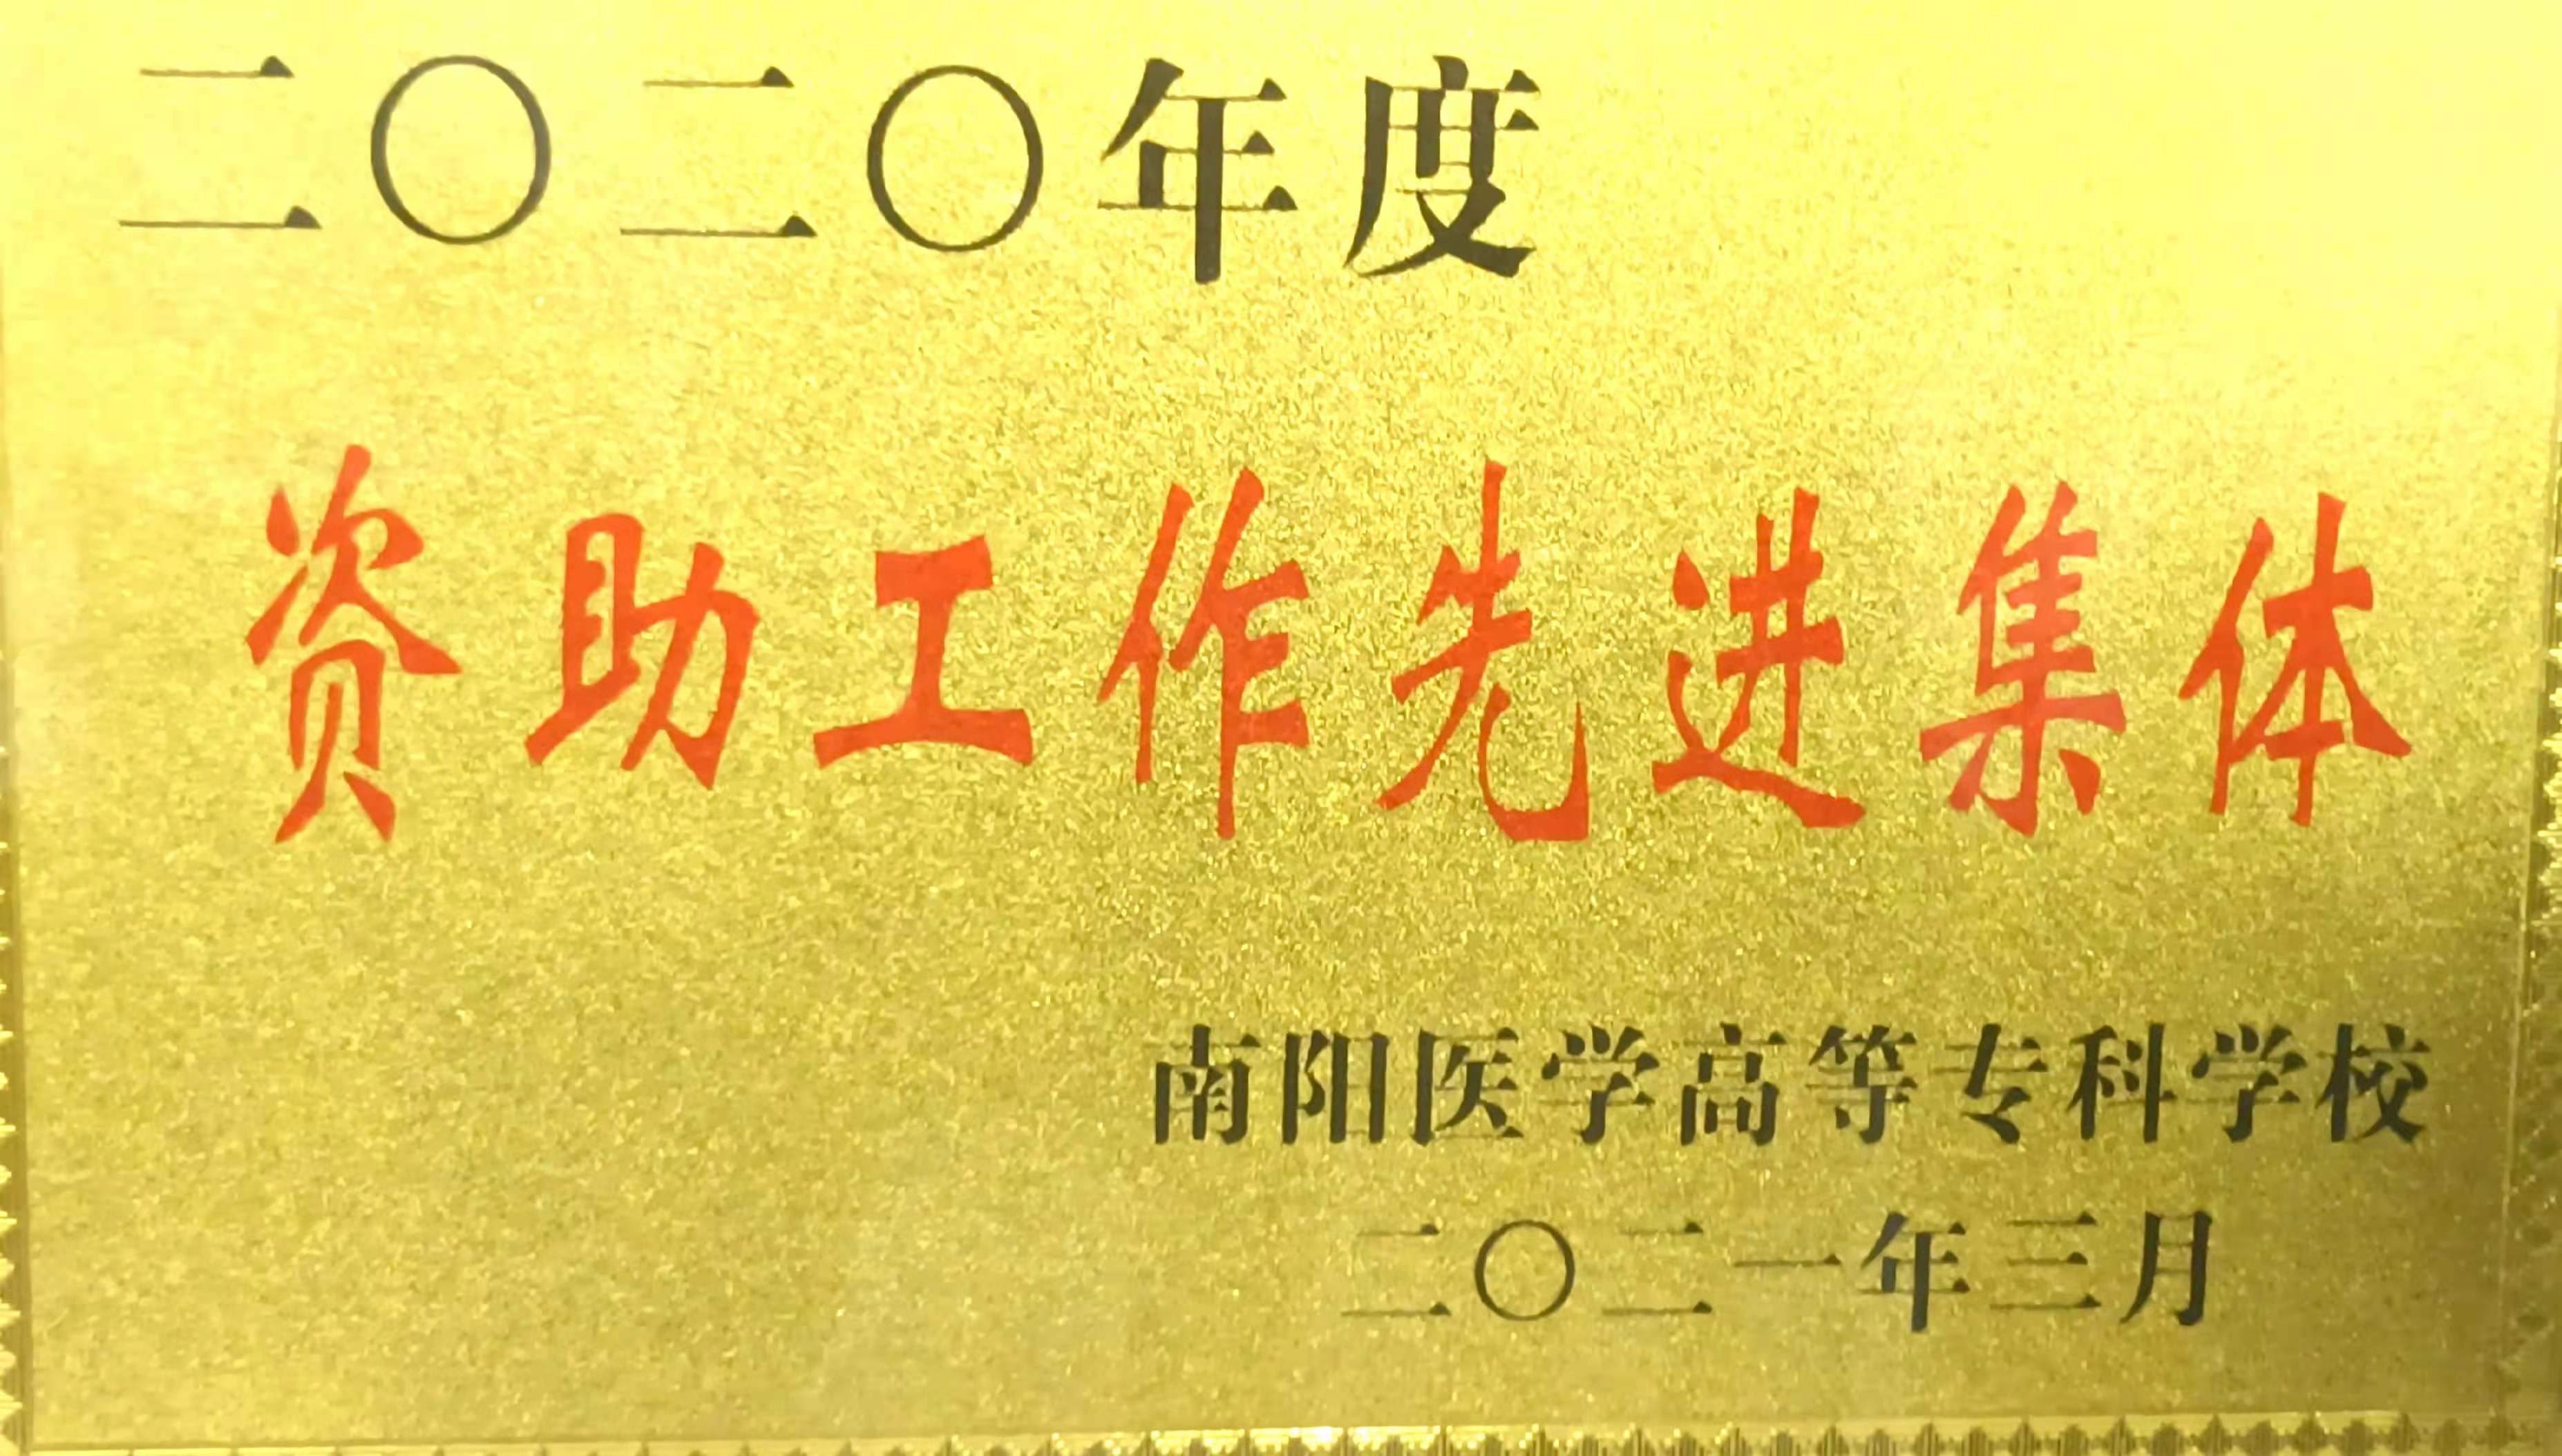 二〇二〇年度
资助工作先进集体
南阳医学高等专科学校
二〇二一年三月